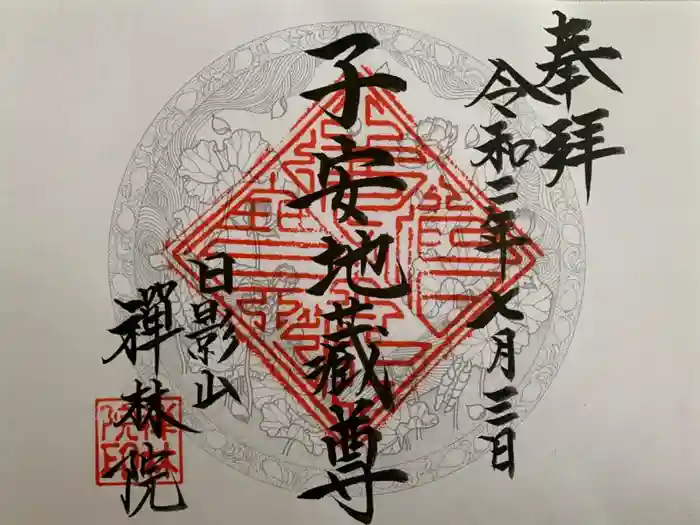 奉拝
令和二年七月三日
子安地蔵尊
日影山
禪林院